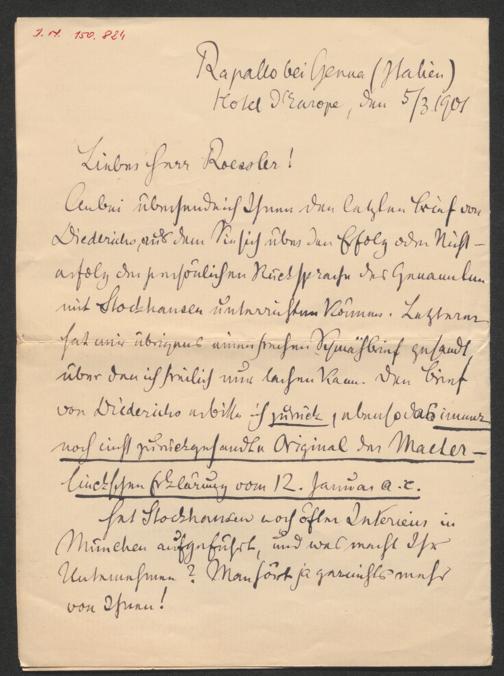 I. N. 150.824
Rapallo bei Genua (Italien)
Hotel d'Europe, den 5/3 1901
Lieber Herr Roessler!
Anbei übersende ich Ihnen den letzten Brief von
Diederichs, aus dem Sie sich über den Erfolg oder Nicht-
erfolg der persönlichen Rücksprache des Genannten
mit Stockhausen unterrichten können. Letzterer
hat mir übrigens einen frechen Schmähbrief gesandt,
über den ich freilich nur lachen kann. Den Brief
von Diederichs erbitte ich zurück, ebenso das immer
noch nicht zurückgesandte Original der Maeter-
linckschen Erklärung vom 12. Januar a. c.
Hat Stockhausen noch öfter Interieur in
München aufgeführt, und was macht Ihr
Unternehmen? Man hört ja gar nichts mehr
von Ihnen!